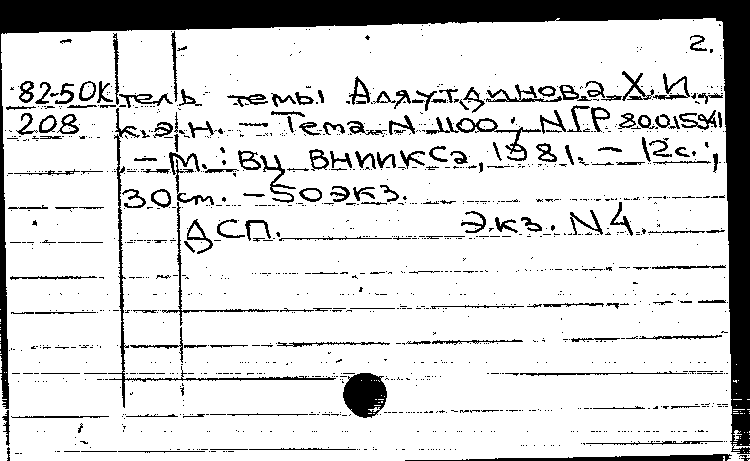 2.
82-50К тель темы Аляутдинова Х.И.,
208 к.э.н. – Тема N 1100; NГР 80015941
. – М.: ВЦ ВНИИКСа, 1981. – 12с.;
30 см. – 50 экз.
ДСП. Экз. N4.